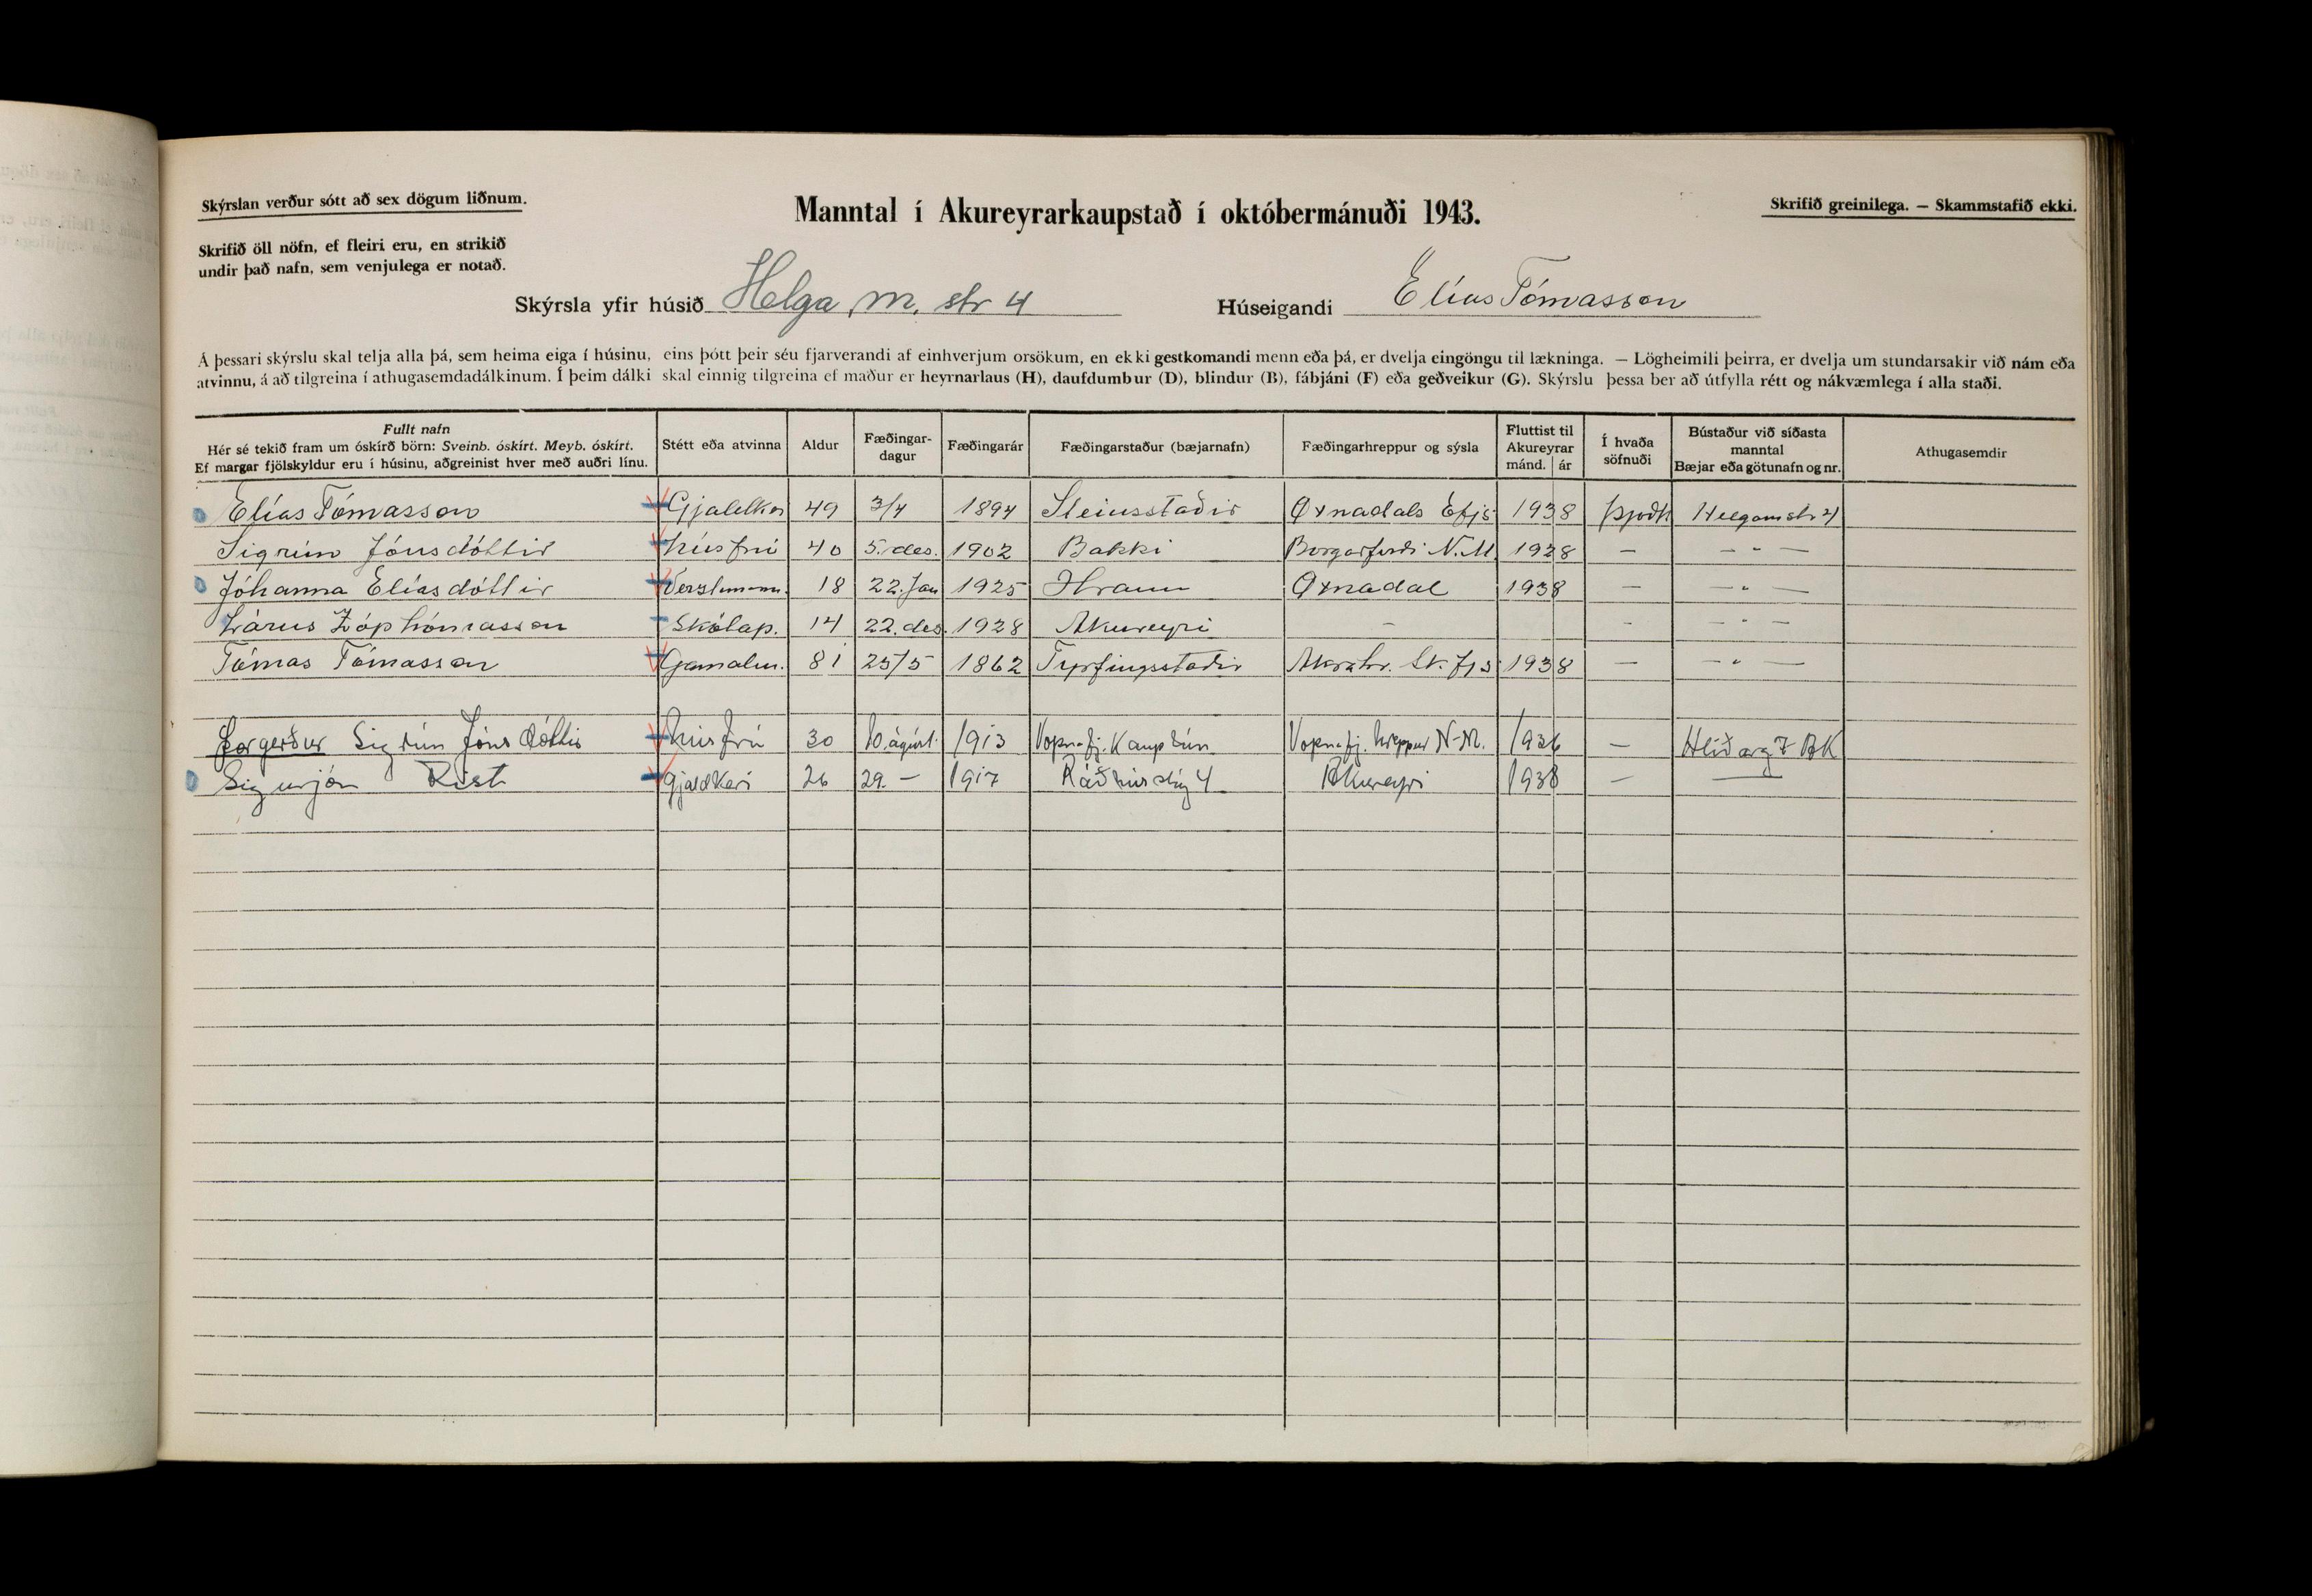 Skýrslan verður sótt að sex dögum liðnum.
Manntal í Akureyrarkaupstað í októbermánuði 1943.
Skrifið greinilega. — Skammstafið ekki.
Skrifið öll nöfn, ef fleiri eru, en strikið
undir það nafn, sem venjulega er notað.
Skýrsla yfir húsið Helga m. str 4 Húseigandi Elías Tómasson
Á þessari skýrslu skal telja alla þá, sem heima eiga í húsinu, eins þótt þeir séu fjarverandi af einhverjum orsökum, en ekki gestkomandi menn eða þá, er dvelja eingöngu til lækninga. — Lögheimili þeirra, er dvelja um stundarsakir við nám eða
atvinnu, á að tilgreina í athugasemdadálkinum. Í þeim dálki skal einnig tilgreina ef maður er heyrnarlaus (H), daufdumbur (D), blindur (B), fábjáni (F) eða geðveikur (G). Skýrslu þessa ber að útfylla rétt og nákvæmlega í alla staði.
Fullt nafn
Hér sé tekið fram um óskírð börn: Sveinb. óskírt. Meyb. óskírt.
Ef margar fjölskyldur eru í húsinu, aðgreinist hver með auðri línu.
Stétt eða atvinna
Aldur
Fæðingar-
dagur
Fæðingarár
Fæðingarstaður (bæjarnafn)
Fæðingarhreppur og sýsla
Fluttist til
Akureyrar
mánd. ár
Í hvaða
söfnuði
Bústaður við síðasta
manntal
Bæjar eða götunafn og nr.
Athugasemdir
Elías Tómasson Gjaldker 49 3/4 1894 Steinsstaðir Öxnadals Efjs 1938 Þjóðk Helgamstr 4
Sigrún Jónsdóttir húsfrú 40 5. des. 1902 Bakki Borgarfirði N.M. 1928 — — " —
Jóhanna Elíasdóttir Verzlunarm. 18 22. Jan 1925 Hraun Öxnadal 1938 — — " —
Lárus Zóphóníasson Skólap. 14 22. des. 1928 Akureyri — — — " —
Tómas Tómasson Gamalm. 81 25/5 1862 Tyrfingsstaðir Akrahr. Sk.fjs 1938 — — " —
Þorgerður Sigrún Jónsdóttir húsfrú 30 10. ágúst. 1913 Vopnafj. Kauptún Vopnafj. hreppur N-M. 1936 — Hlíðarg 7 AK
Sigurjón Rist gjaldkeri 26 29. — 1917 Ráðhússtíg 4 Akureyri 1938 — —